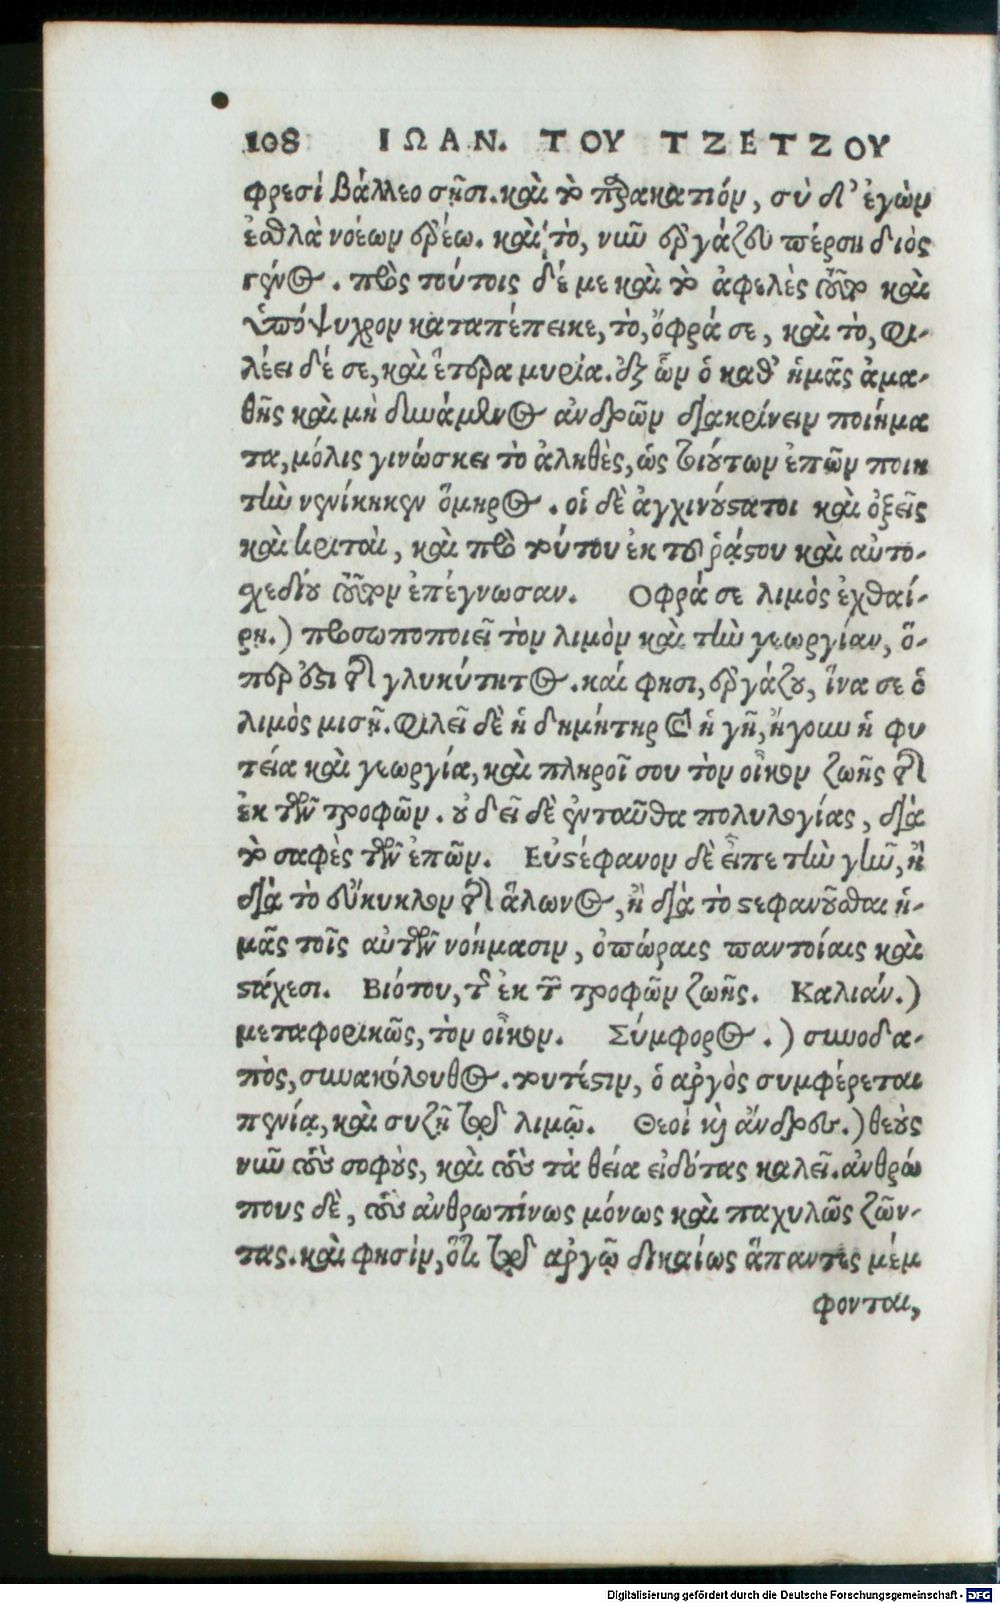 108 ΙΩΑΝ. ΤΟΥ ΤΖΕΤΖΟΥ
φρεσὶ βάλλεο σῇσι. καὶ τὸ παρακατιόν, σὺ δ' ἐγὼν
ἐσθλὰ νοέων ἐρέω. καὶ τὸ, νῦν ἐργάζου πέρση διὸς
γένος. πρὸς τούτοις δέ με καὶ τὸ ἀφελὲς τοῦτο καὶ
ὑπόψυχρον καταπέπεικε, τὸ, ὄφρά σε, καὶ τὸ, φι-
λέει δέ σε, καὶ ἕτερα μυρία. ἐξ ὧν ὁ καθ' ἡμᾶς ἀμα-
θὴς καὶ μὴ δυνάμενος ἀνδρῶν διακρίνειν ποιήμα
τα, μόλις γινώσκει τὸ ἀληθὲς, ὡς τοιούτων ἐπῶν ποιη
τὴν νενίκηκεν ὅμηρος. οἱ δὲ ἀγχινούστατοι καὶ ὀξεῖς
καὶ κριταὶ, καὶ πρὸ τούτου ἐκ τοῦ ῥᾴστου καὶ αὐτο-
χεδίου τοῦτον ἐπέγνωσαν. Οφρά σε λιμὸς ἐχθαί-
ρῃ.) προσωποποιεῖ τὸν λιμὸν καὶ τὴν γεωργίαν, ὅ-
περ ἐστι γλυκύτητος. καί φησι, ἐργάζου, ἵνα σε ὁ
λιμὸς μισῇ. φιλεῖ δὲ ἡ δημήτηρ σε ἡ γῆ, ἤγουν ἡ φυ
τεία καὶ γεωργία, καὶ πληροῖ σου τὸν οἶκον ζωῆς
ἐκ τῶν τροφῶν. οὐ δεῖ δὲ ἐνταῦθα πολυλογίας, διὰ
τὸ σαφὲς τῶν ἐπῶν. Εὐστέφανον δὲ εἶπε τὴν γῆν, ἢ
διὰ τὸ εὔκυκλον ἅλωνος, ἢ διὰ τὸ στεφανοῦσθαι ἡ-
μᾶς τοῖς αὐτῶν νοήμασιν, ὀπώραις παντοίαις καὶ
στάχεσι. Βιότου, τῆς ἐκ τῶν τροφῶν ζωῆς. Καλιάν.)
μεταφορικῶς, τὸν οἶκον. Σύμφορος.) συνοδα-
πὸς, συνακόλουθος. τουτέστιν, ὁ ἀργὸς συμφέρεται
πενίᾳ, καὶ συζῇ τῷ λιμῷ. Θεοὶ καὶ ἄνδρες.) θεοὺς
νῦν τοὺς σοφοὺς, καὶ τοὺς τὰ θεία εἰδότας καλεῖ. ἀνθρώ
πους δὲ, τοὺς ἀνθρωπίνως μόνως καὶ παχυλῶς ζῶν-
τας. καὶ φησὶν, ὅτι τῷ ἀργῷ δικαίως ἅπαντες μέμ
φονται,
Digitalisierung gefördert durch die Deutsche Forschungsgemeinschaft - DFG